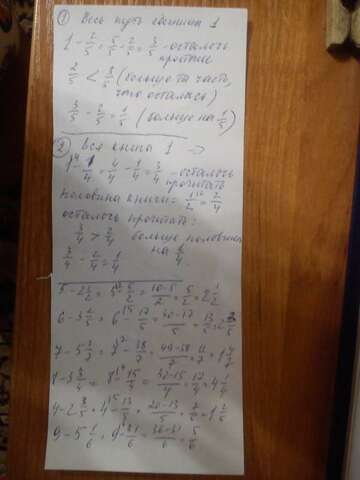 ① Весь путь составил 1
1 - 2/5 = 5/5 - 2/5 = 3/5 - осталось
2/5 < 3/5 (больше та часть,
что осталась)
3/5 - 2/5 = 1/5 (больше на 1/5)
② Вся книга 1 ⇒
1 - 1/4 = 4/4 - 1/4 = 3/4 - осталось
прочитать
половина книги = 1/2 = 2/4
осталось прочитать:
3/4 > 2/4 больше половины
3/4 - 2/4 = 1/4 на 1/4
5 - 2 1/2 = 5 - 5/2 = 10-5/2 = 5/2 = 2 1/2
6 - 3 2/5 = 6 - 17/5 = 30-17/5 = 13/5 = 2 3/5
7 - 5 3/7 = 7 - 38/7 = 49-38/7 = 11/7 = 1 4/7
8 - 3 3/4 = 8 - 15/4 = 32-15/4 = 17/4 = 4 1/4
4 - 2 3/5 = 4 - 13/5 = 20-13/5 = 7/5 = 1 2/5
9 - 5 1/6 = 9 - 31/6